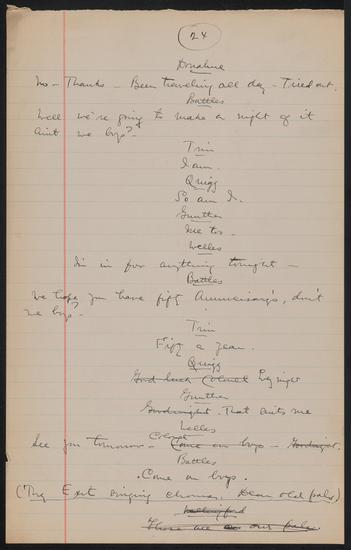 24
Donahue
No - Thanks - Been traveling all day - Tired out.
Battles
Well we're going to make a night of it
aint we boys?
Trin
I am.
Quigg
So am I.
Gunther
Me too -
Welles
I'm in for anything tonight -
Battles
We hope you have fifty Anniversary's, don't
we boys?
Trin
Fifty a year.
Quigg
Good luck Colonel
Gunther
Goodnight. That aints me
Welles
See you tomorrow - Colonel Come on boys - Goodnight.
Battles
Come on boys.
(Trg Exit singing chorus, Dear old pals)
Wallingford
Those are our pals